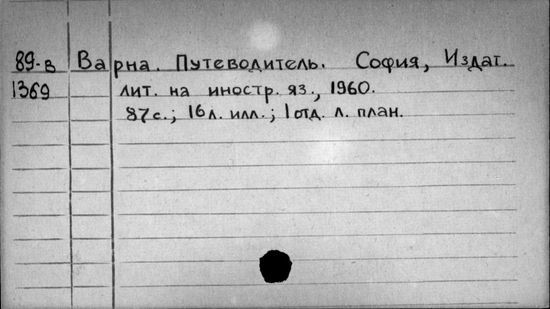 89-в Варна. Путеводитель. София, Издат.
1369 лит. на иностр. яз., 1960.
87с.; 16л. илл.; 1 отд. л. план.